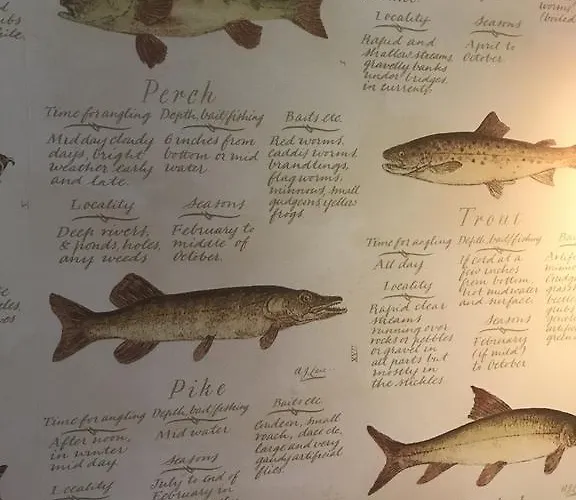 Locality
Rapid and
shallow streams
gravelly banks
under bridges,
in currents.
Seasons
April to
October.
Perch
Time for angling
Midday cloudy
days, bright
weather early
and late.
Depth, bait fishing
6 inches from
bottom or mid
water.
Baits etc.
Red worms,
caddis worms
brandlings,
flag worms,
minnows, small
gudgeons yellow
frogs.
Locality
Deep rivers,
& ponds, holes,
any weeds
Seasons
February to
middle of
October.
Trout
Time for angling
All day
Depth, bait fishing
If cold at a
few inches
from bottom,
hot midwater
and surface.
Locality
Rapid clear
streams
running over
rocks or pebbles
or gravel in
all parts but
mostly in
the stickles.
Seasons
February
(if mild)
to October
XVII
Pike
Time for angling
After noon,
in winter
mid day.
Depth, bait fishing
Mid water
Baits etc.
Gudgeon, small
roach, dace etc,
large and very
gaudy artificial
flies.
Locality
Seasons
July to end of
February in